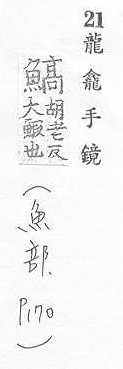 21龍龕手鏡
鰝胡老反
大鰕也
(魚部 P170)